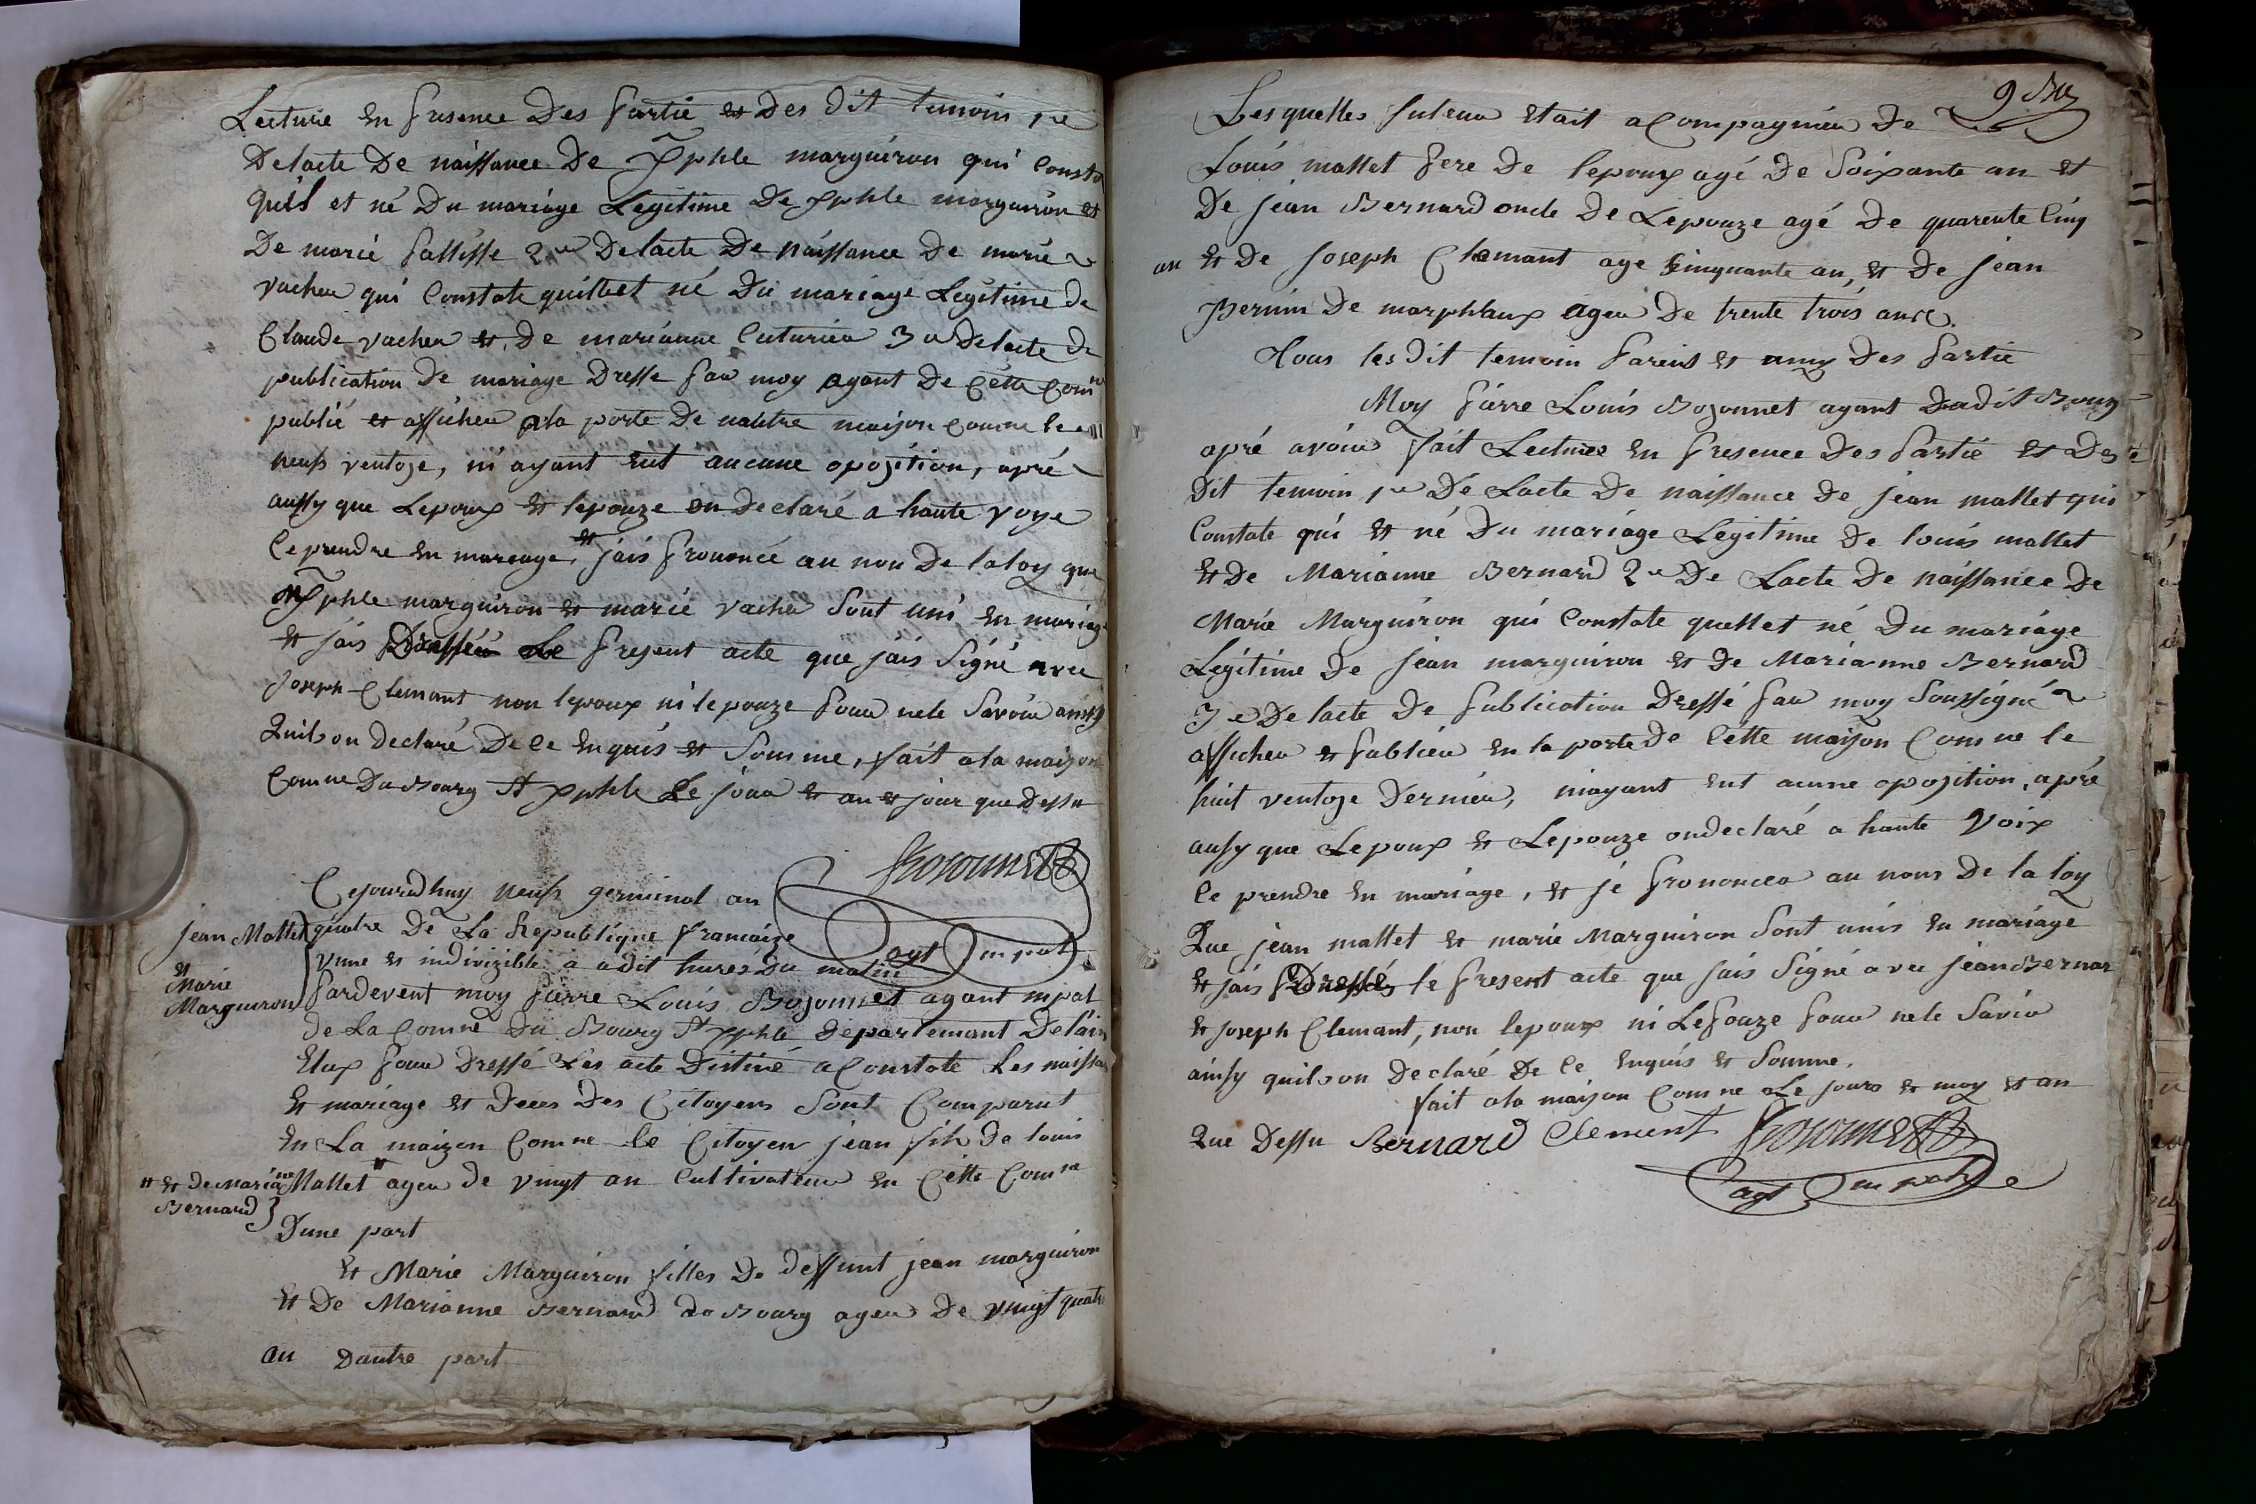 Lecture En presence Des partie et Des Dit temoin 1re
Delacte De naissance De Xpphle marguiron qui Consta
quil et né Du mariage Legitime De Xpphle marguiron et
De marie 2me Delacte De naissance De marie
vacher qui Constate quillet né Du mariage Legitime de
Claude vacher et De marianne Cuturier 3e Delacte De
publication De mariage Dresse par moy agant De Cette Comne
publié et afficher ala porte De maison Comne le
neuf ventoze, ni ayant eut aucune opozition, apré
aussy que Lepoux et lepouze on Declaré a haute voye
Ce prendre En mareage, et jais prononcé au non De la loy que
Xpphle marguiron et marie vacher Sont uni En mariage
et jais Dressée Le present acte que jais Signé avec
Joseph Clemant non lepoux ni lepouze pour nele Savoir ainsy
Quils on declaré De Ce Enquis et Somme, fait ala maison
Comne Du Bourg St Xpphle Le jour et an et jour que Dessu
Bozonnet
agt mpal
Cejourdhuy neuf germinal an
Jean Mallet
et
Marie
Marguiron
quatre De La Republique francaize
vune et indivizible a adit hures Du matin
pardevent moy pierre Louis Bozonnet agant mpal
de La Comne Du Bourg St Xpphle departemant Delain
Elux pour Dressé Les acte Distiné a Constaté Les naissan
Et mariage et Deces Des Citoyens Sont Comparut
En La maizon Comne le Citoyen jean fils de louis
# et de Marianne
Bernard
Mallet # ager de vingt an Cultivateur En Cette Comne
Dune part
et Marie Marguiron filles De deffunt jean marguiron
Et De Marianne Bernard do Bourg ager De vingt quatre
an Dautre part
9
Lesquelles futeur Etait aCompagnier De
Louis mallet pere De lepoux agé De Soixante an et
De jean Bernard oncle De Lepouze agé De quarente Cinq
an et De Joseph Clemant age Cinquante an, et De jean
De agea De trente trois ans.
Tous les Dit temoin parent et amy Des partie
Moy pierre Louis Bozonnet agant Dudit Bourg
apré avoir fait Lecture En presence Des partie et Des
Dit temoin 1re De Lacte De naissance De jean mallet qui
Constate qui et né Du mariage Legitime De louis mallet
et De Marianne Bernard 2e De Lacte De naissance De
Marie Marguiron qui Constate quellet né Du mariage
Legitime De jean marguiron et De Marianne Bernard
3e De lacte De publication Dressé par moy Soussigné
afficher et publier En la porte De Cette maizon Comne le
huit ventoze Dernier, niayant eut aucune opozition, apré
ausy que Lepoux et Lepouze ondeclaré a haute Voix
Ce prendre En mariage, et jé prononcer au nom De la loy
Que jean mallet et marie Marguiron Sont unis En mariage
et jais Dressés le present acte que jais Signé avec jean Bernar
et joseph Clemant, non lepoux ni Lepouze pour nele Savoir
ainsy quils on Declaré De Ce Enquis et Somme.
fait ala maizon Comne Le jours et moy et an
Que Dessu Bernard Clement Bozonnet
agt mpal